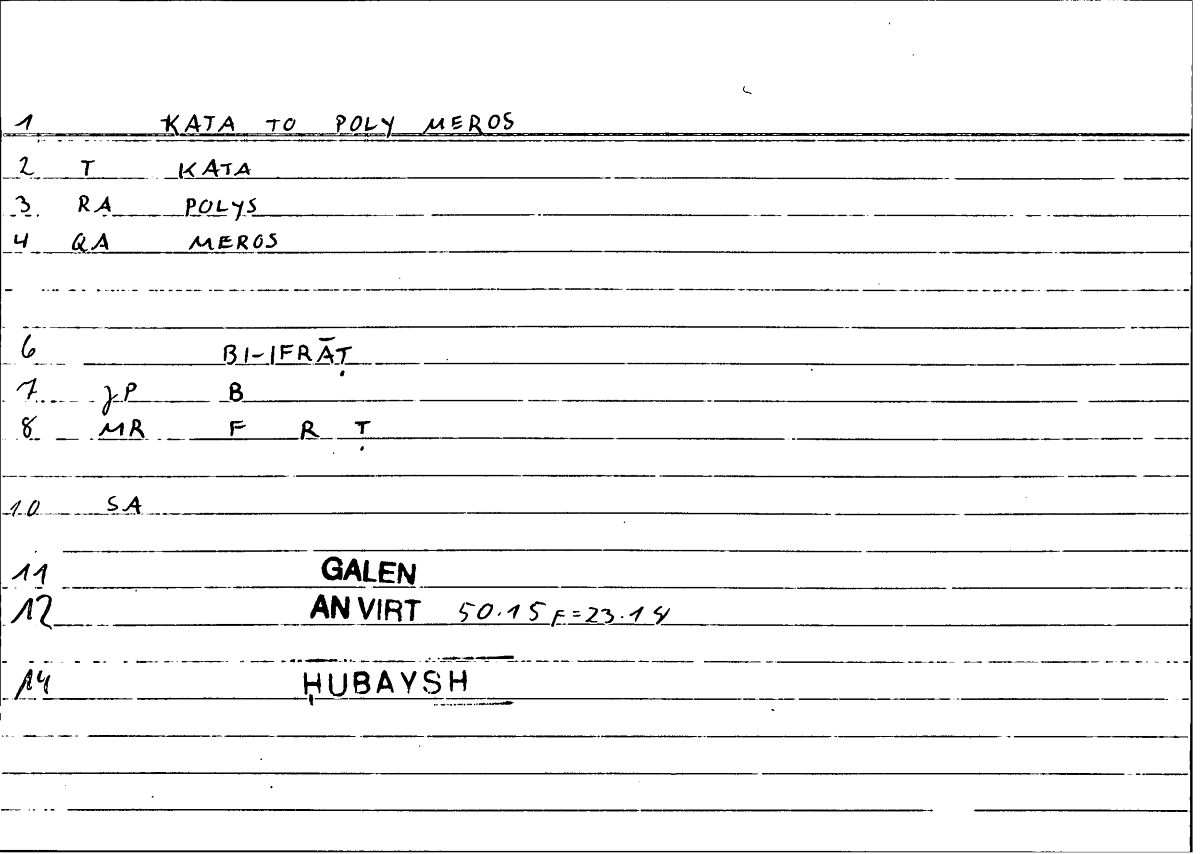 1 KATA TO POLY MEROS
2 T KATA
3. RA POLYS
4 QA MEROS
6 BI-IFRĀṬ
7. JP B
8. MR F R Ṭ
10 SA
11 GALEN
12 AN VIRT 50.15 F=23.14
14 ḤUBAYSH